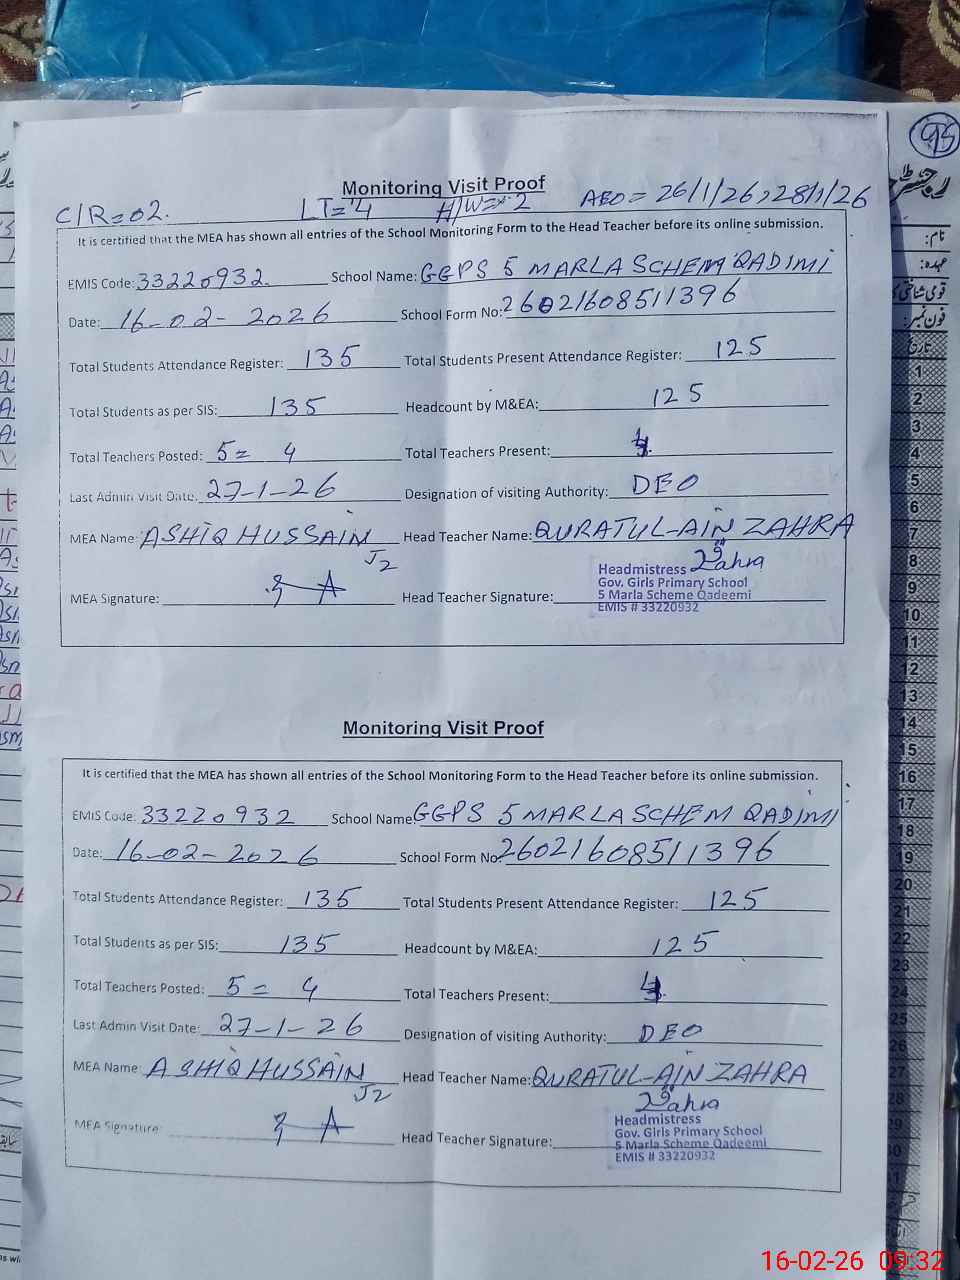 95
رجسٹر
Monitoring Visit Proof
C/R=02.
LT=4
H/W=2
AEO = 26/1/26, 28/1/26
It is certified that the MEA has shown all entries of the School Monitoring Form to the Head Teacher before its online submission.
EMIS Code: 33220932 School Name: GGPS 5 MARLA SCHEM QADIMI
Date: 16-02-2026 School Form No: 26021608511396
Total Students Attendance Register: 135 Total Students Present Attendance Register: 125
Total Students as per SIS: 135 Headcount by M&EA: 125
Total Teachers Posted: 5= 4 Total Teachers Present: 4
Last Admin Visit Date: 27-1-26 Designation of visiting Authority: DEO
MEA Name: ASHIQ HUSSAIN J2 Head Teacher Name: QURATUL-AIN ZAHRA
Zahra
MEA Signature: Head Teacher Signature:
Headmistress
Gov. Girls Primary School
5 Marla Scheme Qadeemi
EMIS # 33220932
Monitoring Visit Proof
It is certified that the MEA has shown all entries of the School Monitoring Form to the Head Teacher before its online submission.
EMIS Code: 33220932 School Name: GGPS 5 MARLA SCHEM QADIMI
Date: 16-02-2026 School Form No: 26021608511396
Total Students Attendance Register: 135 Total Students Present Attendance Register: 125
Total Students as per SIS: 135 Headcount by M&EA: 125
Total Teachers Posted: 5= 4 Total Teachers Present: 4
Last Admin Visit Date: 27-1-26 Designation of visiting Authority: DEO
MEA Name: ASHIQ HUSSAIN J2 Head Teacher Name: QURATUL-AIN ZAHRA
Zahra
MEA Signature: Head Teacher Signature:
Headmistress
Gov. Girls Primary School
5 Marla Scheme Qadeemi
EMIS # 33220932
نام:
عہدہ:
قومی شناختی
فون نمبر:
تاریخ
1
2
3
4
5
6
7
8
9
10
11
12
13
14
15
16
17
18
19
20
21
22
23
24
25
26
27
28
29
30
16-02-26 09:32